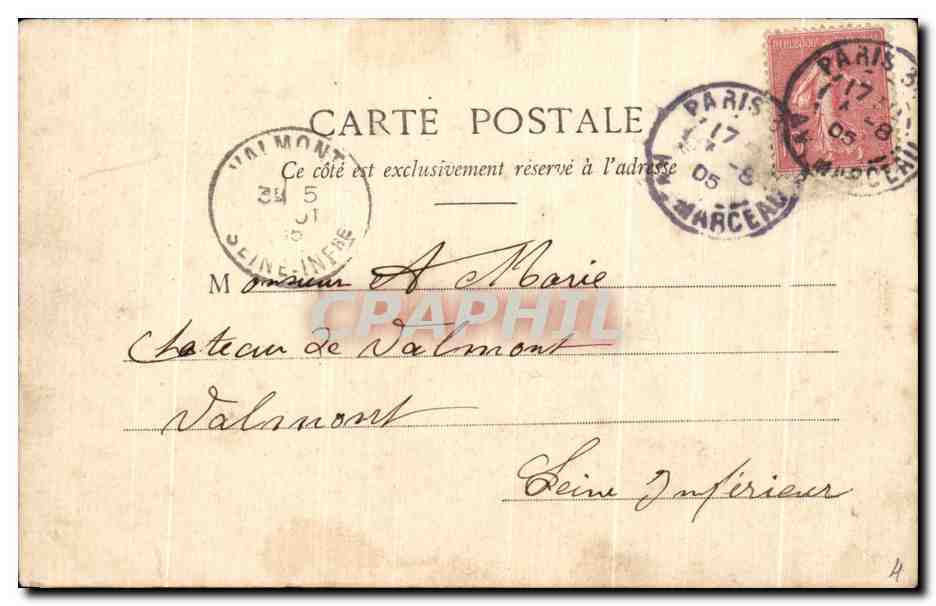 CARTE POSTALE
Ce côté est exclusivement réservé à l'adresse
Monsieur A Marie
Chateau de Valmont
Valmont
Seine Inférieur
VALMONT
5
SEINE-INFRE
PARIS
17
05
MARCEAU
PARIS
17
-8
05
AV. MARCEAU
CPAPHIL
4